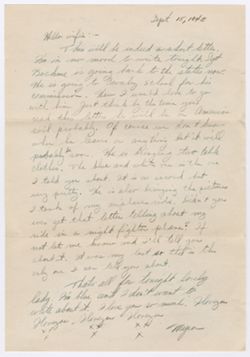 Sept 15, 1945
Hello wifie:-
This will be indeed a short letter.
I'm in no mood to write tonight. Sgt
is going back to the states now.
He is going to for his
commission. I wish I could close to you
with him. Just think by the time you
read this letter he will be on American
soil probably. Of course we don't know
when he leaves or anything but it will
probably soon. He is
clothes. The blue and white
I told you about. It is a second but
very pretty. He is also bringing the pictures
I took of my airplane ride. Didn't you
ever get that letter telling about my
ride in a night fighter plane? If
not let me know and I'll tell you
about it. It was my last so that is the
only one I can tell you about.
That's all for tonight lovely
lady. I'm blue and I don't want to
write about it. I love you so much. Always
Always, Always, Always
x x x x
Myron